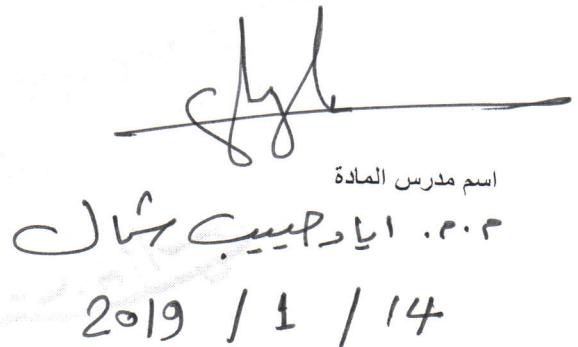 اسم مدرس المادة
م.م. اياد حبيب شمال
2019 / 1 / 14